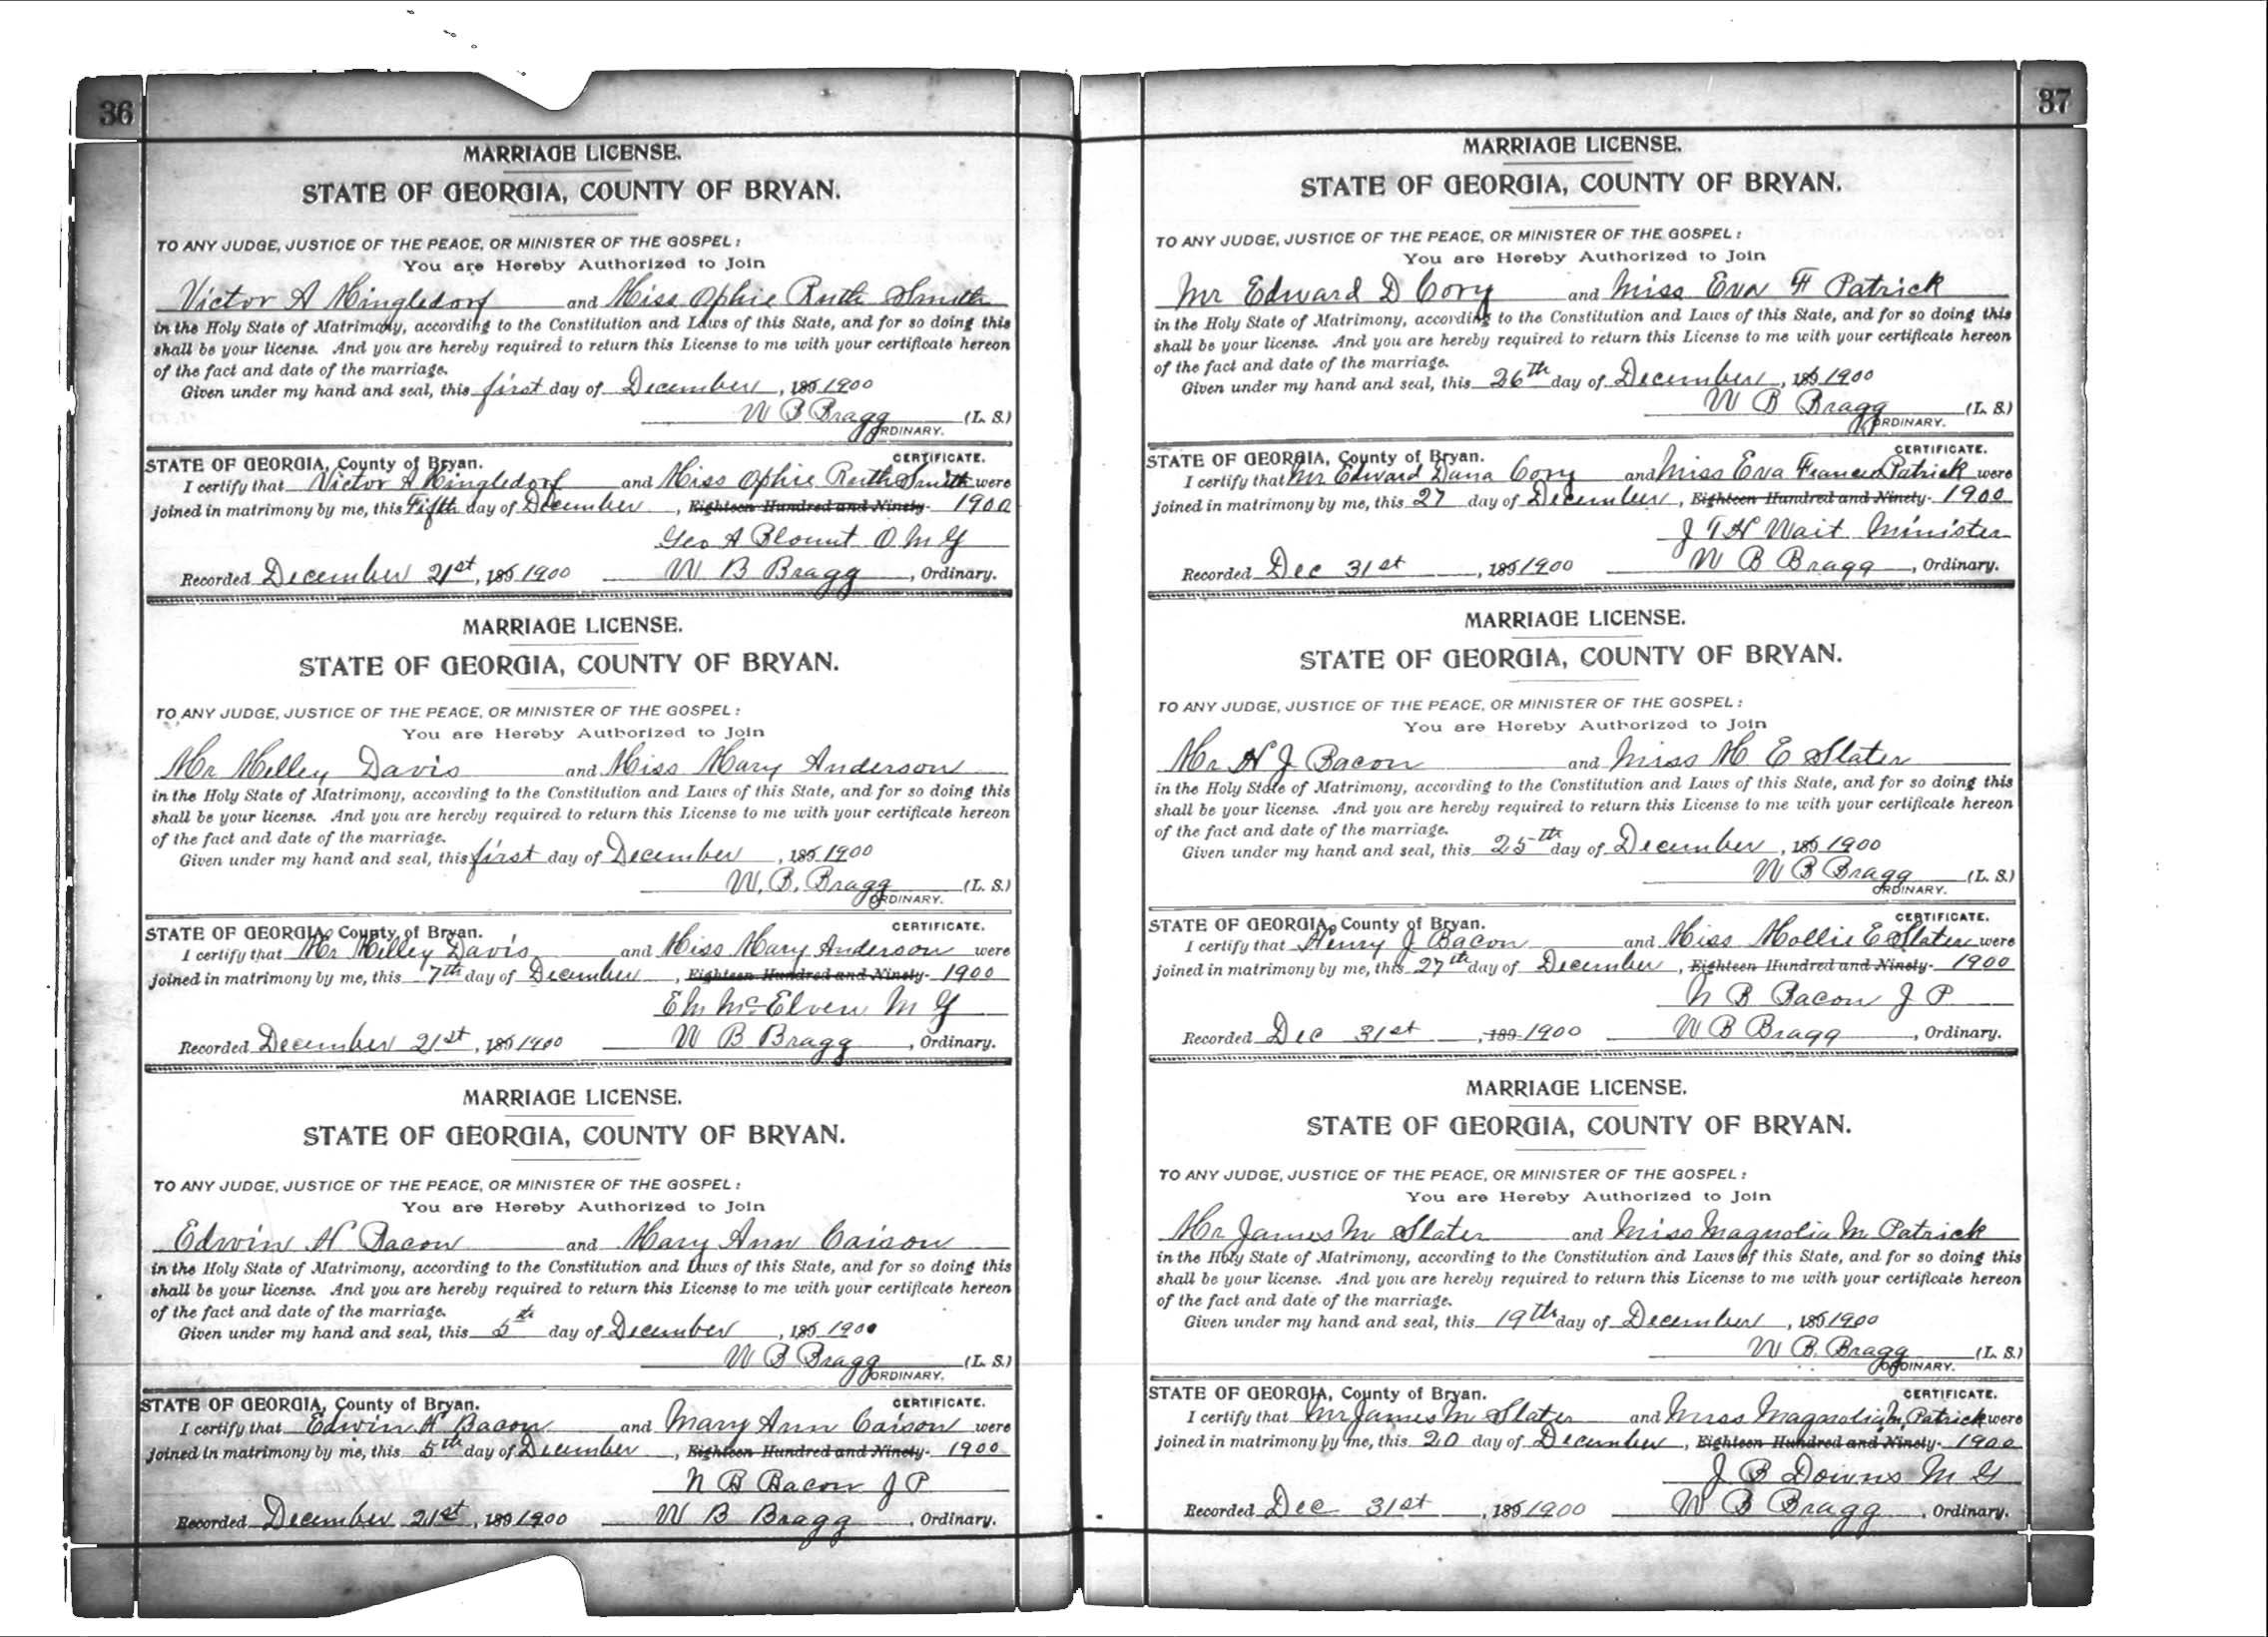 36
MARRIAGE LICENSE.
STATE OF GEORGIA, COUNTY OF BRYAN.
TO ANY JUDGE, JUSTICE OF THE PEACE, OR MINISTER OF THE GOSPEL:
You are Hereby Authorized to Join
Victor A Hingledorf and Miss Ophie Ruth Smith
in the Holy State of Matrimony, according to the Constitution and Laws of this State, and for so doing this
shall be your license. And you are hereby required to return this License to me with your certificate hereon
of the fact and date of the marriage.
Given under my hand and seal, this first day of December, 189 1900
W B Bragg (L. S.)
ORDINARY.
STATE OF GEORGIA, County of Bryan. CERTIFICATE.
I certify that Victor A Hingledorf and Miss Ophie Ruth Smith were
joined in matrimony by me, this Fifth day of December, Eighteen Hundred and Ninety- 1900
Geo A Blount O M G
Recorded December 21st, 189 1900 W B Bragg, Ordinary.
MARRIAGE LICENSE.
STATE OF GEORGIA, COUNTY OF BRYAN.
TO ANY JUDGE, JUSTICE OF THE PEACE, OR MINISTER OF THE GOSPEL:
You are Hereby Authorized to Join
Mr Milley Davis and Miss Mary Anderson
in the Holy State of Matrimony, according to the Constitution and Laws of this State, and for so doing this
shall be your license. And you are hereby required to return this License to me with your certificate hereon
of the fact and date of the marriage.
Given under my hand and seal, this first day of December, 189 1900
W. B. Bragg (L. S.)
ORDINARY.
STATE OF GEORGIA, County of Bryan. CERTIFICATE.
I certify that Mr Milley Davis and Miss Mary Anderson were
joined in matrimony by me, this 7th day of December, Eighteen Hundred and Ninety- 1900
E M McElven M G
Recorded December 21st, 189 1900 W B Bragg, Ordinary.
MARRIAGE LICENSE.
STATE OF GEORGIA, COUNTY OF BRYAN.
TO ANY JUDGE, JUSTICE OF THE PEACE, OR MINISTER OF THE GOSPEL:
You are Hereby Authorized to Join
Edwin H Bacon and Mary Ann Caison
in the Holy State of Matrimony, according to the Constitution and Laws of this State, and for so doing this
shall be your license. And you are hereby required to return this License to me with your certificate hereon
of the fact and date of the marriage.
Given under my hand and seal, this 5th day of December, 189 1900
W B Bragg (L. S.)
ORDINARY.
STATE OF GEORGIA, County of Bryan. CERTIFICATE.
I certify that Edwin H Bacon and Mary Ann Caison were
joined in matrimony by me, this 5th day of December, Eighteen Hundred and Ninety- 1900
N B Bacon J P
Recorded December 21st, 189 1900 W B Bragg, Ordinary.
37
MARRIAGE LICENSE.
STATE OF GEORGIA, COUNTY OF BRYAN.
TO ANY JUDGE, JUSTICE OF THE PEACE, OR MINISTER OF THE GOSPEL:
You are Hereby Authorized to Join
Mr Edward D Cory and Miss Eva F Patrick
in the Holy State of Matrimony, according to the Constitution and Laws of this State, and for so doing this
shall be your license. And you are hereby required to return this License to me with your certificate hereon
of the fact and date of the marriage.
Given under my hand and seal, this 26th day of December, 189 1900
W B Bragg (L. S.)
ORDINARY.
STATE OF GEORGIA, County of Bryan. CERTIFICATE.
I certify that Mr Edward Dana Cory and Miss Eva Frances Patrick were
joined in matrimony by me, this 27 day of December, Eighteen Hundred and Ninety- 1900
J T H Wait Minister
Recorded Dec 31st, 189 1900 W B Bragg, Ordinary.
MARRIAGE LICENSE.
STATE OF GEORGIA, COUNTY OF BRYAN.
TO ANY JUDGE, JUSTICE OF THE PEACE, OR MINISTER OF THE GOSPEL:
You are Hereby Authorized to Join
Mr H J Bacon and Miss M E Slater
in the Holy State of Matrimony, according to the Constitution and Laws of this State, and for so doing this
shall be your license. And you are hereby required to return this License to me with your certificate hereon
of the fact and date of the marriage.
Given under my hand and seal, this 25th day of December, 189 1900
W B Bragg (L. S.)
ORDINARY.
STATE OF GEORGIA, County of Bryan. CERTIFICATE.
I certify that Henry J Bacon and Miss Mollie E Slater were
joined in matrimony by me, this 27th day of December, Eighteen Hundred and Ninety- 1900
N B Bacon J P
Recorded Dec 31st, 189 1900 W B Bragg, Ordinary.
MARRIAGE LICENSE.
STATE OF GEORGIA, COUNTY OF BRYAN.
TO ANY JUDGE, JUSTICE OF THE PEACE, OR MINISTER OF THE GOSPEL:
You are Hereby Authorized to Join
Mr James M Slater and Miss Magnolia M Patrick
in the Holy State of Matrimony, according to the Constitution and Laws of this State, and for so doing this
shall be your license. And you are hereby required to return this License to me with your certificate hereon
of the fact and date of the marriage.
Given under my hand and seal, this 19th day of December, 189 1900
W B. Bragg (L. S.)
ORDINARY.
STATE OF GEORGIA, County of Bryan. CERTIFICATE.
I certify that Mr James M Slater and Miss Magnolia M, Patrick were
joined in matrimony by me, this 20 day of December, Eighteen Hundred and Ninety- 1900
J B Downs M G
Recorded Dec 31st, 189 1900 W B Bragg, Ordinary.